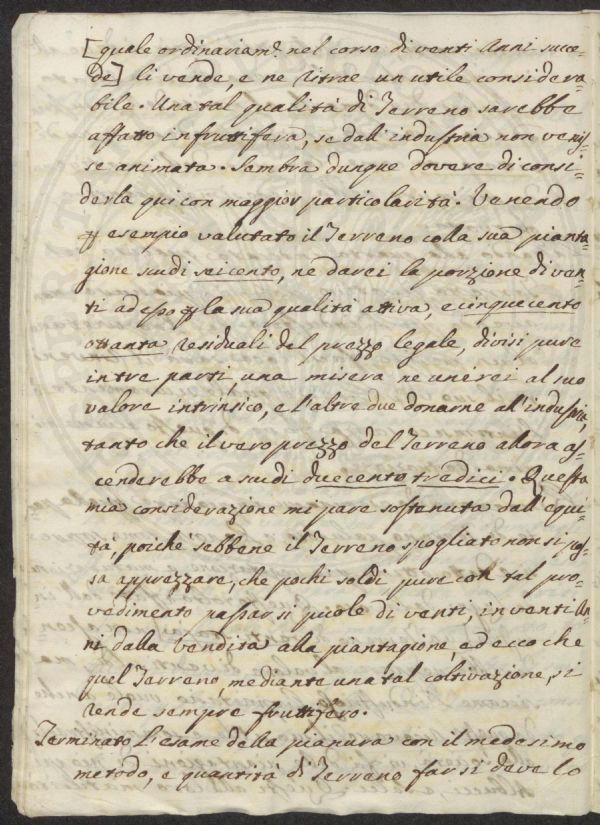 [quale ordinariam.e nel corso di venti Anni succe
de] li vende, e ne ritrae un utile considera=
bile. Una tal qualità di Terreno sarebbe
affatto infruttifera, se dall'industria non venis=
se animata. Sembra dunque dovere di consi=
derla qui con maggior particolarità. Venendo
p esempio valutato il Terreno colla sua pianta=
gione scudi seicento, ne darei la porzione di ven=
ti ad esso p la sua qualità attiva, e cinquecento
ottanta residuali del prezzo legale, divisi pure
in tre parti, una misera ne unirei al suo
valore intrinsico, e l'altre due donarne all'industria,
tanto che il vero prezzo del Terreno allora as=
cenderebbe a scudi duecento tredici. Questa
mia considerazione mi pare sostenuta dall'equi=
tà, poichè sebbene il Terreno spogliato non si pos=
sa apprezzare, che pochi soldi pure con tal pro=
vedimento passarsi puole di venti, in venti An=
ni dalla vendita alla piantagione, ed ecco che
quel Terreno, mediante una tal coltivazione, si
rende sempre fruttifero.
Terminato l'esame della pianura con il medesimo
metodo, e quantità di Terreno farsi deve lo